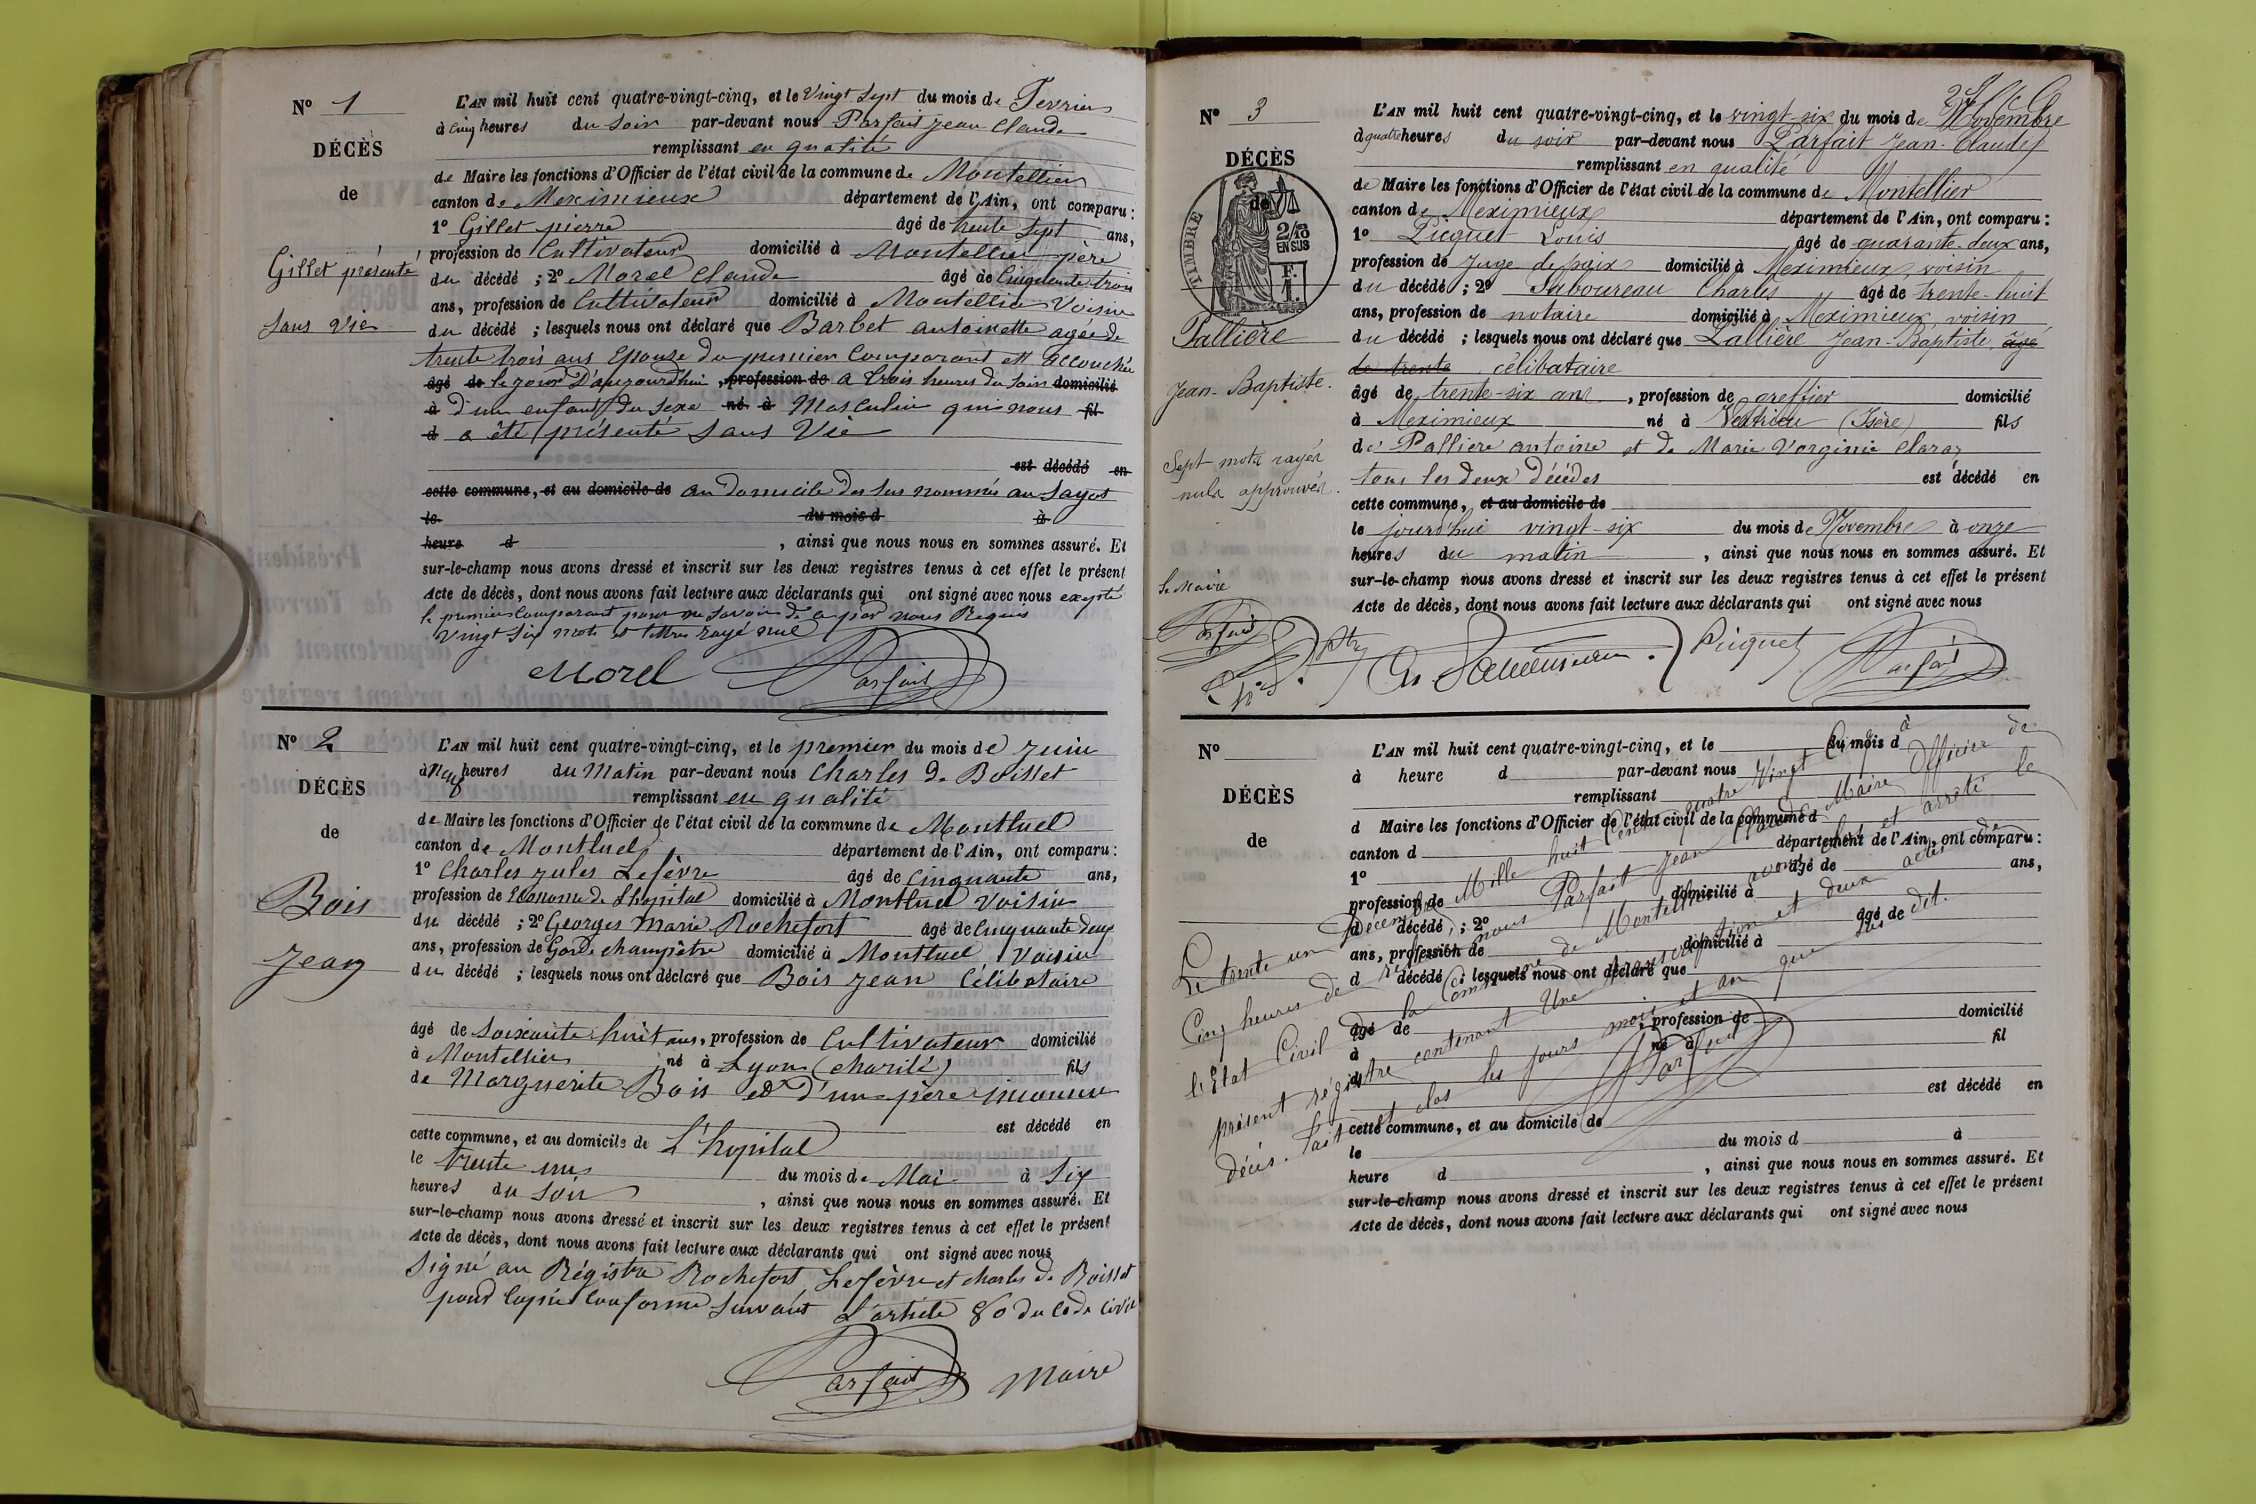 N° 1
DÉCÈS
de
Gillet présenté
sans vie
L'AN mil huit cent quatre-vingt-cinq, et le vingt sept du mois de Fevrier
à cinq heures du soir par-devant nous Parfait jean claude
remplissant en qualité
de Maire les fonctions d'Officier de l'état civil de la commune de Montellier
canton de Meximieux département de l'Ain, ont comparu :
1° Gillet pierre âgé de trente sept ans,
profession de Cultivateur domicilié à Montellier père
du décédé ; 2° Morel claude âgé de Cinquante trois
ans, profession de Cultivateur domicilié à Montellier Voisin
du décédé ; lesquels nous ont déclaré que Barbet antoinette agée de
trente trois ans Epouse du premier Comparant est accouchée
âgé de le jour D'aujourdhui , profession de a trois heures du soir domicilié
à d'un enfant du sexe né à Masculin qui nous fil
d a été présenté sans Vie
est décédé en
cette commune, et au domicile de au domicile des sus nommés au Sayot
le du mois d à
heure d , ainsi que nous nous en sommes assuré. Et
sur-le-champ nous avons dressé et inscrit sur les deux registres tenus à cet effet le présent
Acte de décès, dont nous avons fait lecture aux déclarants qui ont signé avec nous exepté
le premier Comparant pour ne savoir de a par nous Requis
Vingt Six mots et lettres rayé nul
Morel Parfait
N° 2
DÉCÈS
de
Bois
Jean
L'AN mil huit cent quatre-vingt-cinq, et le premier du mois de juin
à Neuf heures du Matin par-devant nous Charles de Boisset
remplissant en qualité
de Maire les fonctions d'Officier de l'état civil de la commune de Montluel
canton de Montluel département de l'Ain, ont comparu :
1° Charles jules Lefèvre âgé de cinquante ans,
profession de Econome de l'hopital domicilié à Montluel voisin
du décédé ; 2° Georges Marie Rochefort âgé de Cinquante deux
ans, profession de Garde champêtre domicilié à Montluel Voisin
du décédé ; lesquels nous ont déclaré que Bois jean Célibataire
âgé de soixante huit ans, profession de Cultivateur domicilié
à Montellier né à Lyon (charité) fils
de Marguerite Bois et d'un père inconnu
est décédé en
cette commune, et au domicile de L'hopital
le trente un du mois de Mai à Six
heures du soir , ainsi que nous nous en sommes assuré. Et
sur-le-champ nous avons dressé et inscrit sur les deux registres tenus à cet effet le présent
Acte de décès, dont nous avons fait lecture aux déclarants qui ont signé avec nous
Signé au Régistre Rochefort Lefèvre et charles de Boisset
pour Copie Conforme suivant L'article 80 du Code Civil
Parfait Maire
N° 3
DÉCÈS
de
TIMBRE
2/10
EN SUS
F.
1.
Pallière
Jean-Baptiste.
Sept mots rayés
nuls approuvés.
Le Maire
Parfait
L'AN mil huit cent quatre-vingt-cinq, et le vingt-six du mois de Novembre
à quatre heures du soir par-devant nous Parfait Jean-Claude
remplissant en qualité
de Maire les fonctions d'Officier de l'état civil de la commune de Montellier
canton de Meximieux département de l'Ain, ont comparu :
1° Picquet Louis âgé de quarante-deux ans,
profession de juge de paix domicilié à Meximieux voisin
du décédé ; 2° Saboureau Charles âgé de trente-huit
ans, profession de notaire domicilié à Meximieux voisin
du décédé ; lesquels nous ont déclaré que Pallière Jean-Baptiste âgé
de trente célibataire
âgé de trente-six ans , profession de greffier domicilié
à Meximieux né à Vertrieu (Isère) fils
de Palliere antoine et de Marie Vorginie Claraz
tous les deux décédés est décédé en
cette commune, et au domicile de
le jourd'hui vingt-six du mois de Novembre à onze
heures du matin , ainsi que nous nous en sommes assuré. Et
sur-le-champ nous avons dressé et inscrit sur les deux registres tenus à cet effet le présent
Acte de décès, dont nous avons fait lecture aux déclarants qui ont signé avec nous
Picquet Parfait
N°
DÉCÈS
de
L'AN mil huit cent quatre-vingt-cinq, et le du mois d
à heure d par-devant nous
remplissant
d Maire les fonctions d'Officier de l'état civil de la commune d
canton d département de l'Ain, ont comparu :
1° âgé de ans,
profession de domicilié à
d décédé ; 2° âgé de
ans, profession de domicilié à
d décédé ; lesquels nous ont déclaré que
âgé de , profession de domicilié
à né à fil
d
est décédé en
cette commune, et au domicile de
le du mois d à
heure d , ainsi que nous nous en sommes assuré. Et
sur-le-champ nous avons dressé et inscrit sur les deux registres tenus à cet effet le présent
Acte de décès, dont nous avons fait lecture aux déclarants qui ont signé avec nous
Le trente un Décembre Mille huit Cent quatre Vingt Cinq à
Cinq heures de nous Parfait Jean Claude Maire Officier de
l'Etat Civil de la Commune de Montellier avons clos et arrêté le
présent régistre contenant Une transcription et deux actes de
décès. Fait et clos les jours mois et an que sus dit.
Parfait